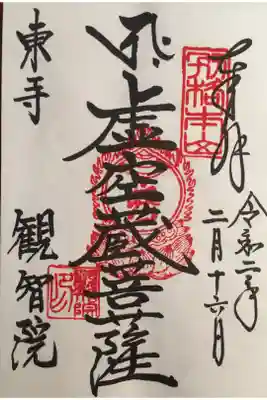 奉拝
令和二年
二月十六日
虚空蔵菩薩
東寺
観智院